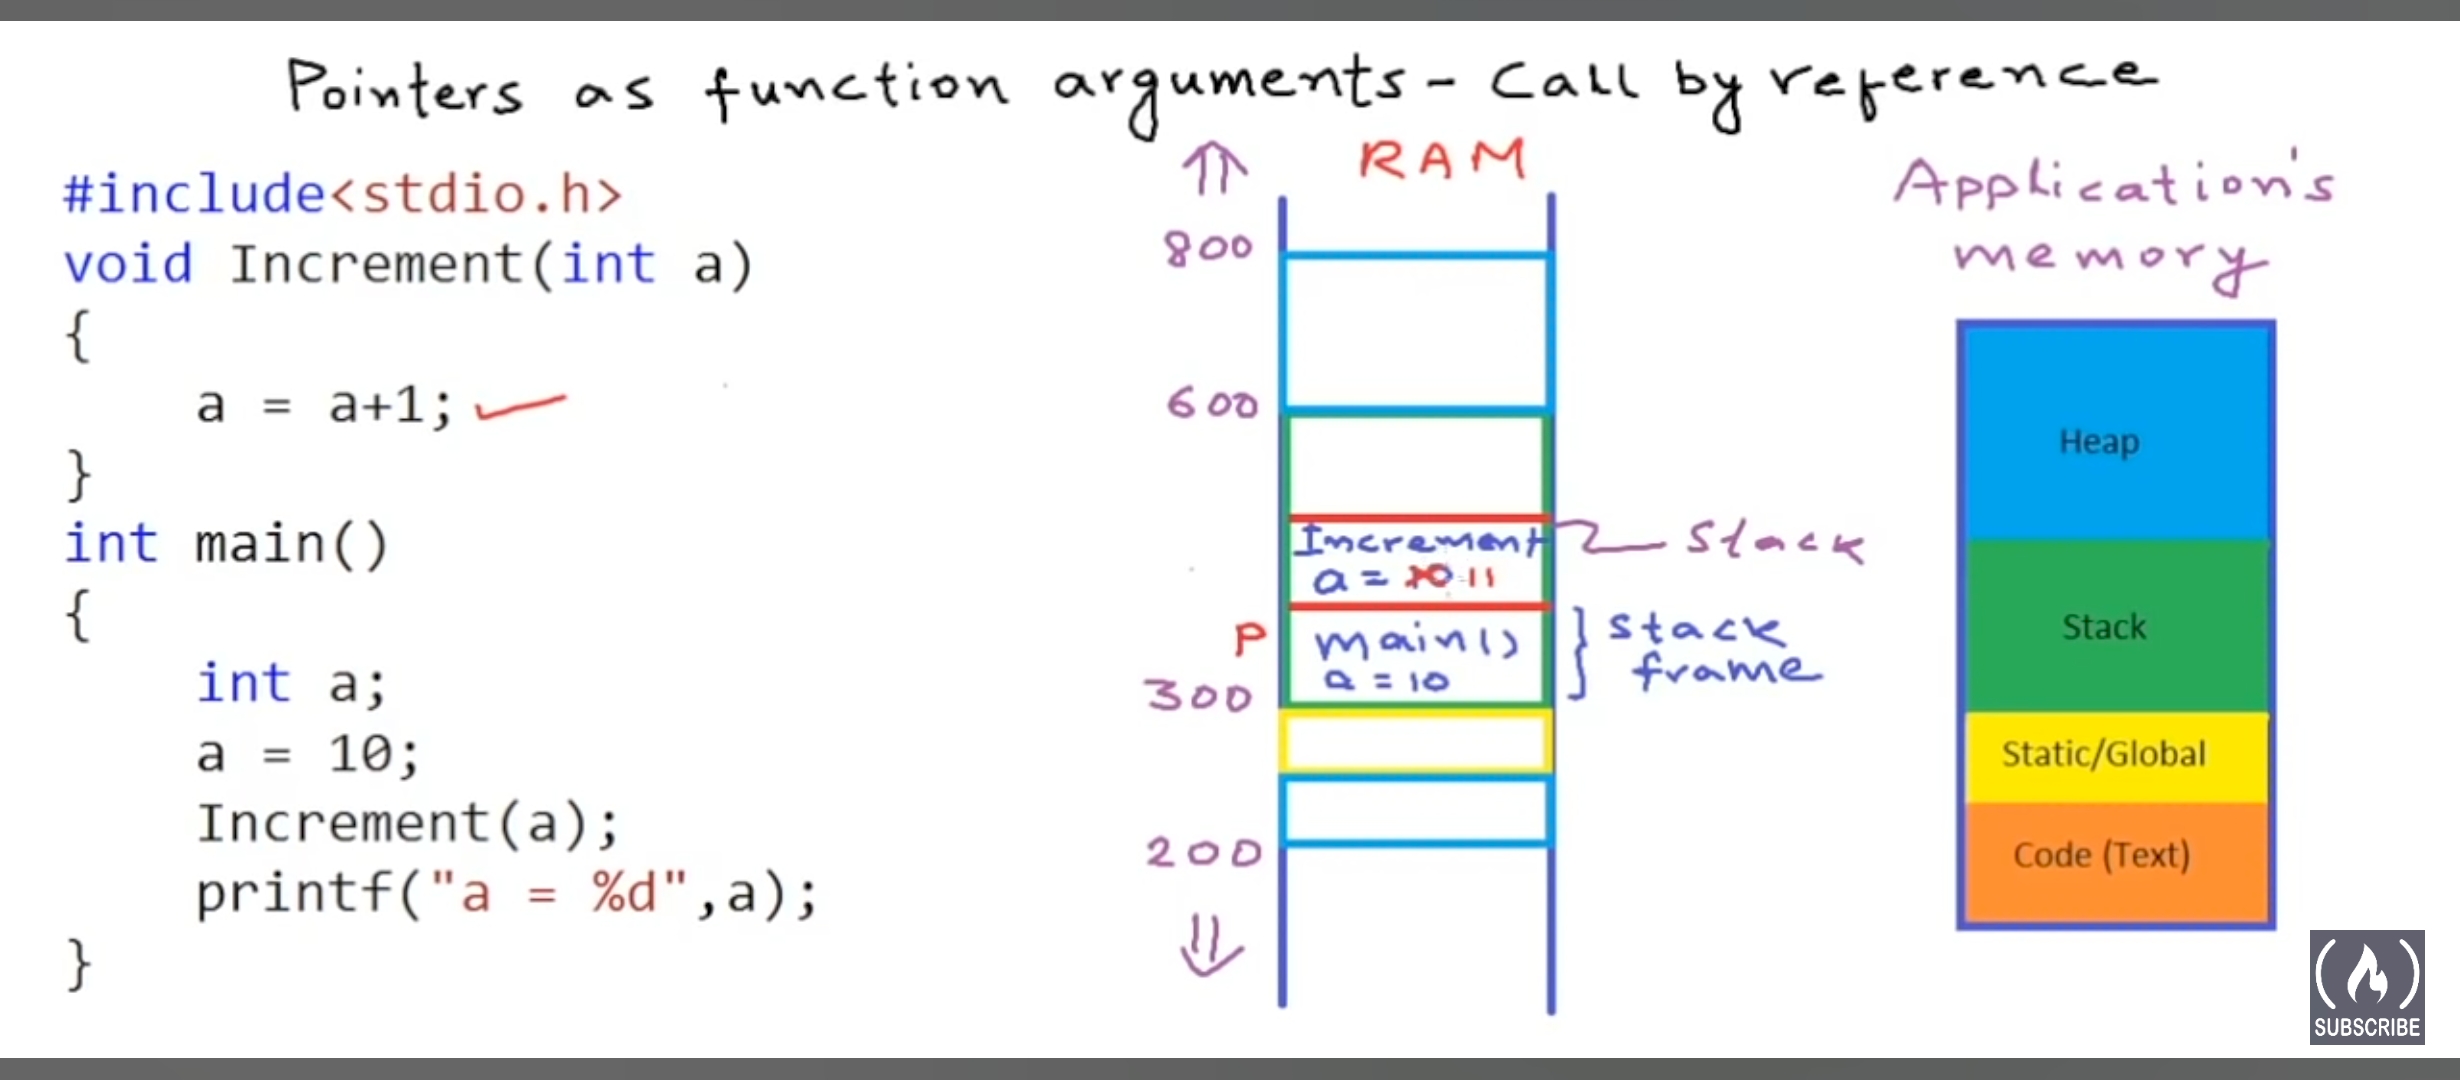 Pointers as function arguments - Call by reference
#include<stdio.h>
void Increment(int a)
{
    a = a+1;
}
int main()
{
    int a;
    a = 10;
    Increment(a);
    printf("a = %d",a);
}
RAM
800
600
Increment
a = 10 11
Stack
P
main()
a = 10
stack
frame
300
200
Application's
memory
Heap
Stack
Static/Global
Code (Text)
SUBSCRIBE